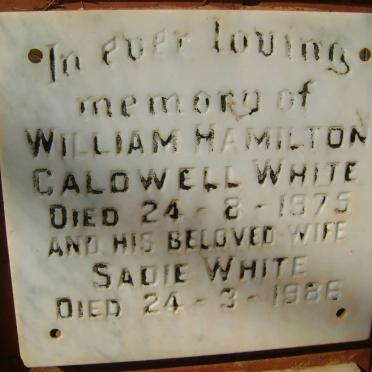 In ever loving
memory of
WILLIAM HAMILTON
CALDWELL WHITE
DIED 24-8-1975
AND HIS BELOVED WIFE
SADIE WHITE
DIED 24-3-1986